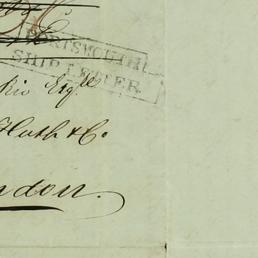 PORTSMOUTH
SHIP LETTER
Esqre
Huth & Co.
ndon.